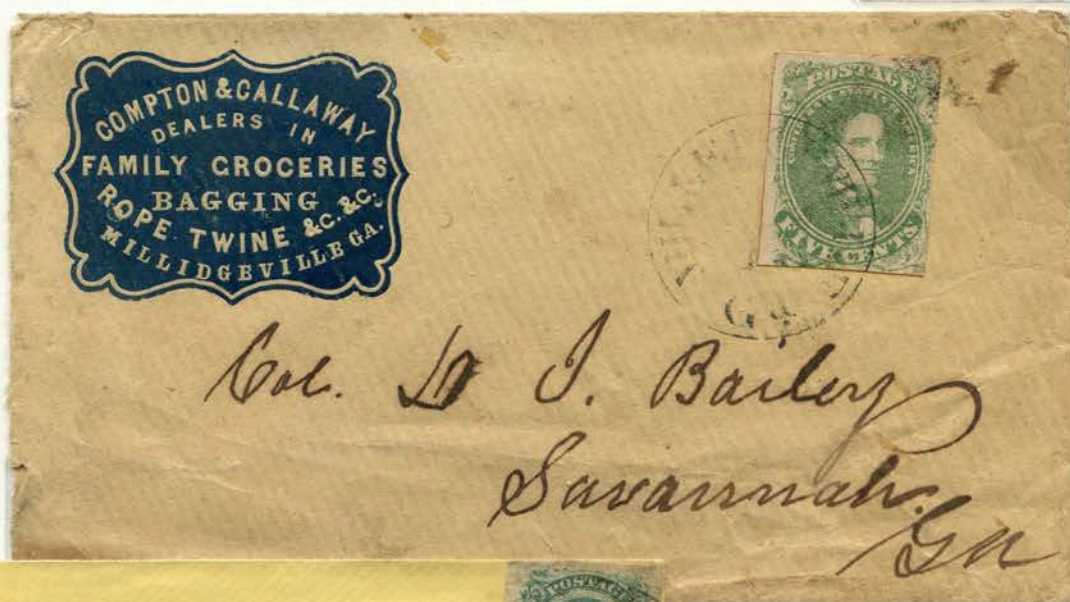 COMPTON & CALLAWAY
DEALERS IN
FAMILY GROCERIES
BAGGING
ROPE TWINE &C. &C.
MILLIDGEVILLE GA.
POSTAGE
FIVE CENTS
Ga
Col. D J. Bailey
Savannah.
Ga
POSTAGE